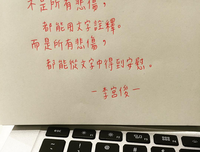 不是所有悲傷，
都能用文字詮釋。
而是所有悲傷，
都能從文字中得到安慰。
－李宮俊－